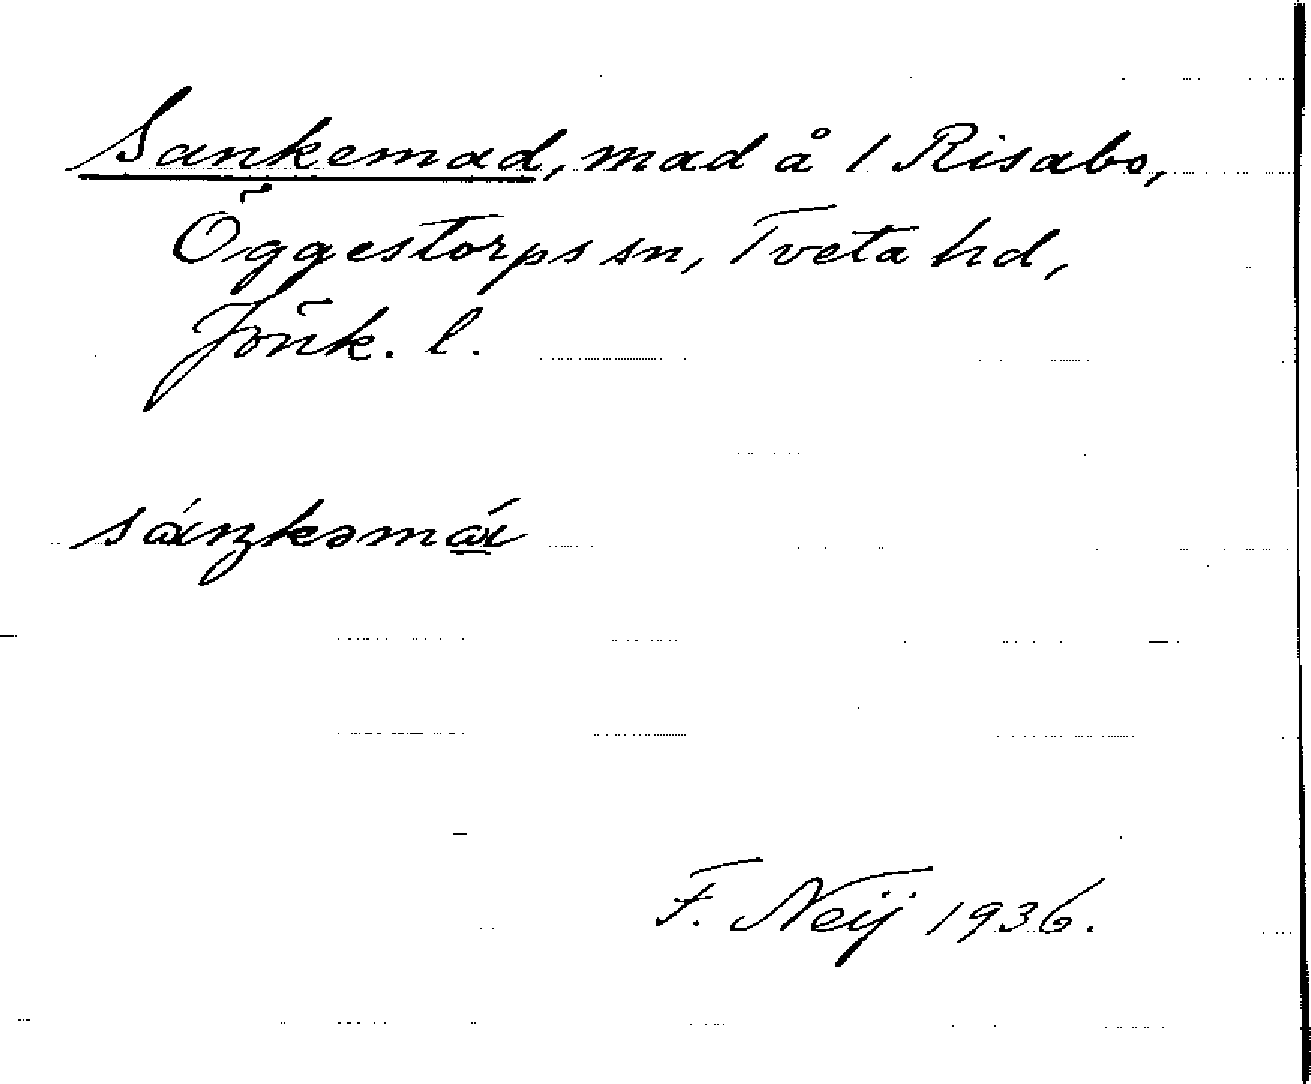 Sankemad, mad å 1 Risabo,
Öggestorps sn, Tveta hd,
Jönk. l.
F. Neij 1936.